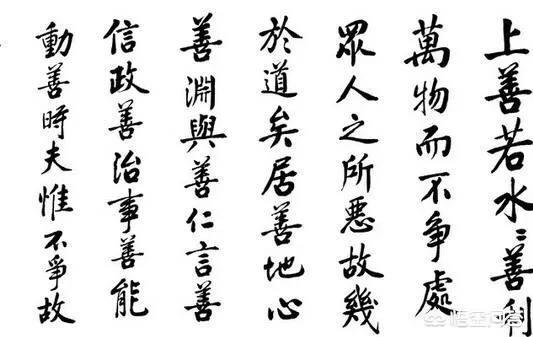 上善若水〻善利
萬物而不爭處
眾人之所惡故幾
於道矣居善地心
善淵與善仁言善
信政善治事善能
動善時夫惟不爭故
悟空问答